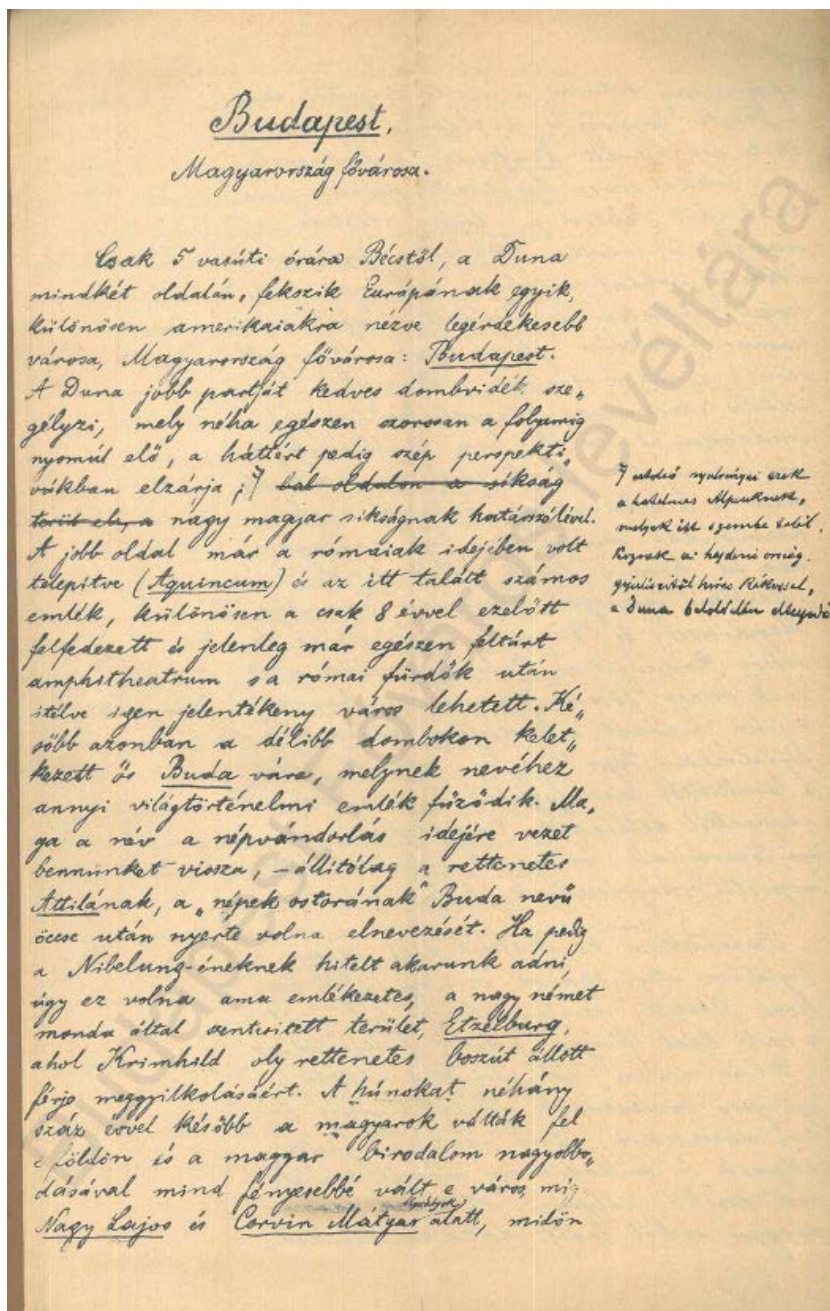 Budapest,
Magyarország fővárosa.
Csak 5 vasúti órára Bécstől, a Duna
mindkét oldalán, fekszik Európának egyik,
különösen amerikaiakra nézve legérdekesebb
városa, Magyarország fővárosa: Budapest.
A Duna jobb partját kedves dombvidék sze„
gélyzi, mely néha egészen szorosan a folyamig
nyomúl elő, a háttért pedig szép perspekti„
vákban elzárja; bal oldalon a síkság
terül el, a nagy magyar síkságnak határszélével.
A jobb oldal már a rómaiak idejében volt
telepítve (Aquincum) és az itt talált számos
emlék, különösen a csak 8 évvel ezelőtt
felfedezett és jelenleg már egészen feltárt
amphitheatrum s a római fürdők után
itélve igen jelentékeny város lehetett. Ké„
sőbb azonban a délibb dombokon kelet„
kezett ős Buda vára, melynek nevéhez
annyi világtörténelmi emlék fűződik. Ma„
ga a név a népvándorlás idejére vezet
bennünket vissza, – állitólag a rettenetes
Attilának, a „népek ostorának" Buda nevű
öccse után nyerte volna elnevezését. Ha pedig
a Nibelung-éneknek hitelt akarunk adni,
úgy ez volna ama emlékezetes, a nagy német
monda által szentesitett terület, Etzelburg,
ahol Krimhild oly rettenetes boszút állott
férje meggyilkolásáért. A húnokat néhány
száz évvel később a magyarok válták fel
e földön és a magyar birodalom nagyobbo„
dásával mind fényesebbé vált e város, mig
Nagy Lajos és Corvin Mátyás alatt, midőn
utolsó nyulványai ezek
a hatalmas Alpeseknek,
melyek itt szembe
a hajdani ország„
gyűléseiről híres Rákossal,
a Duna baloldalán elterjedő
levéltára